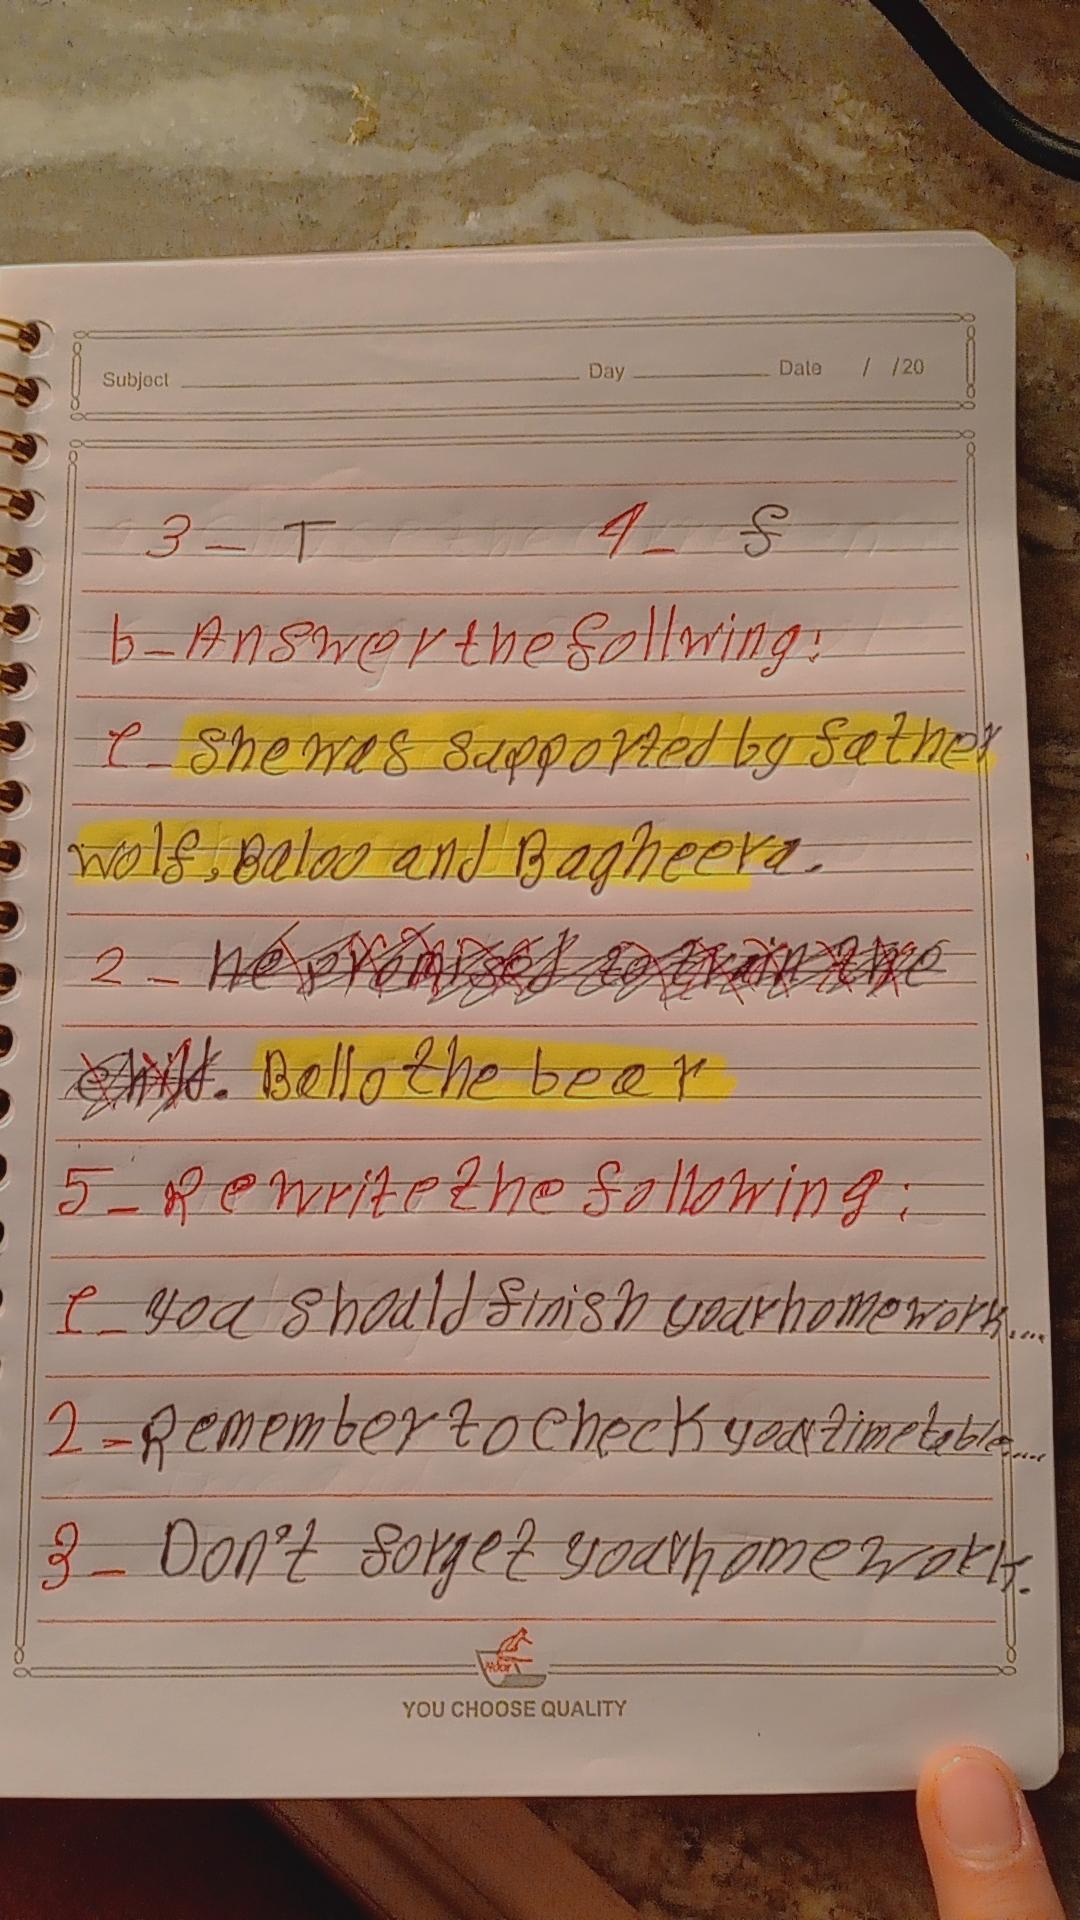 Subject Day Date / /20
3 - T 4 - f
b - Answer the follwing:
1 - She was supported by father
wolf, Baloo and Bagheera.
2 - he promised to train the
child. Ballo the bear
5 - Rewrite the following:
1 - you should finish your homework....
2 - Remember to check your timetable....
3 - Don't forget your homework.
YOU CHOOSE QUALITY